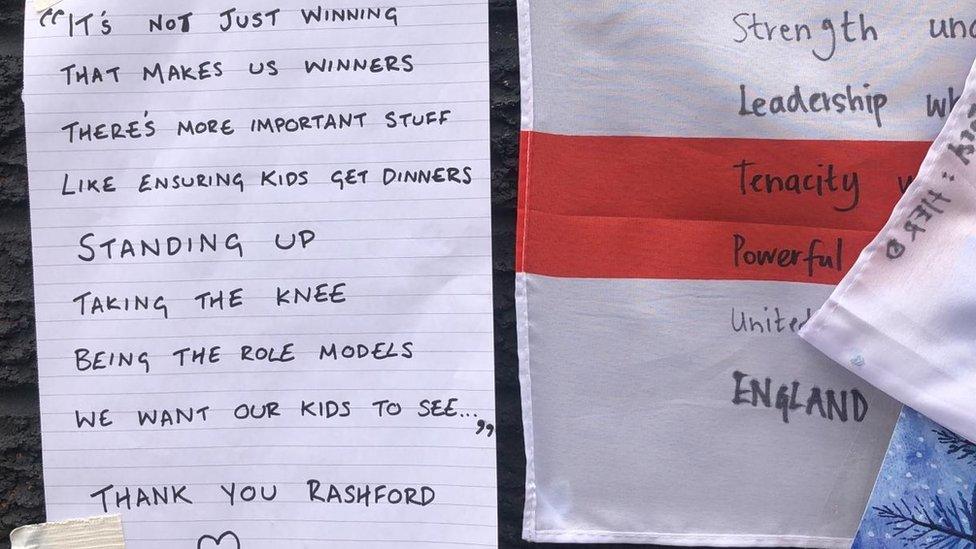 “IT'S NOT JUST WINNING
THAT MAKES US WINNERS
THERE'S MORE IMPORTANT STUFF
LIKE ENSURING KIDS GET DINNERS
STANDING UP
TAKING THE KNEE
BEING THE ROLE MODELS
WE WANT OUR KIDS TO SEE...”
THANK YOU RASHFORD
Strength
Leadership
Tenacity
Powerful
United
ENGLAND
: HERO